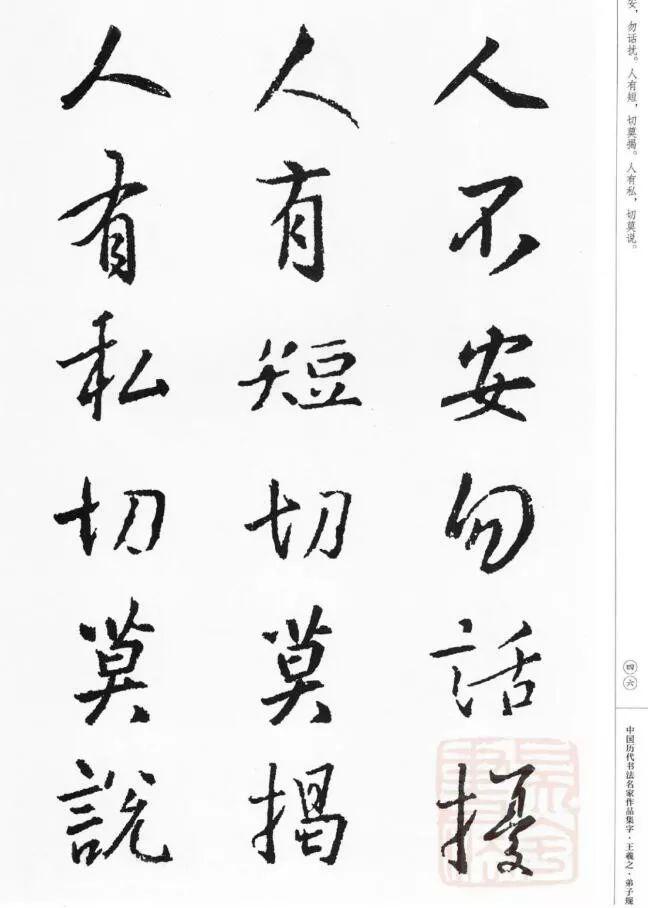 安，勿话扰。人有短，切莫揭。人有私，切莫说。
四六
中国历代书法名家作品集字·王羲之·弟子规
人不安勿話擾
人有短切莫揭
人有私切莫說